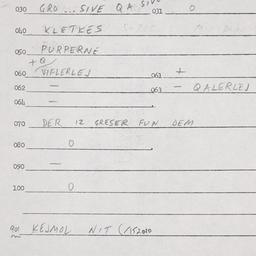 030 GRO ... SIVE QA 031 0
040 KLETKES
050 PURPERNE
+Q
060 VIFLERLEJ 061 +
062 — 063 — QALERLEJ
064 —
070 DER 12 GRESER FUN DEM
080 0
090 —
100 0
901 KEJMOL NIT (/152010